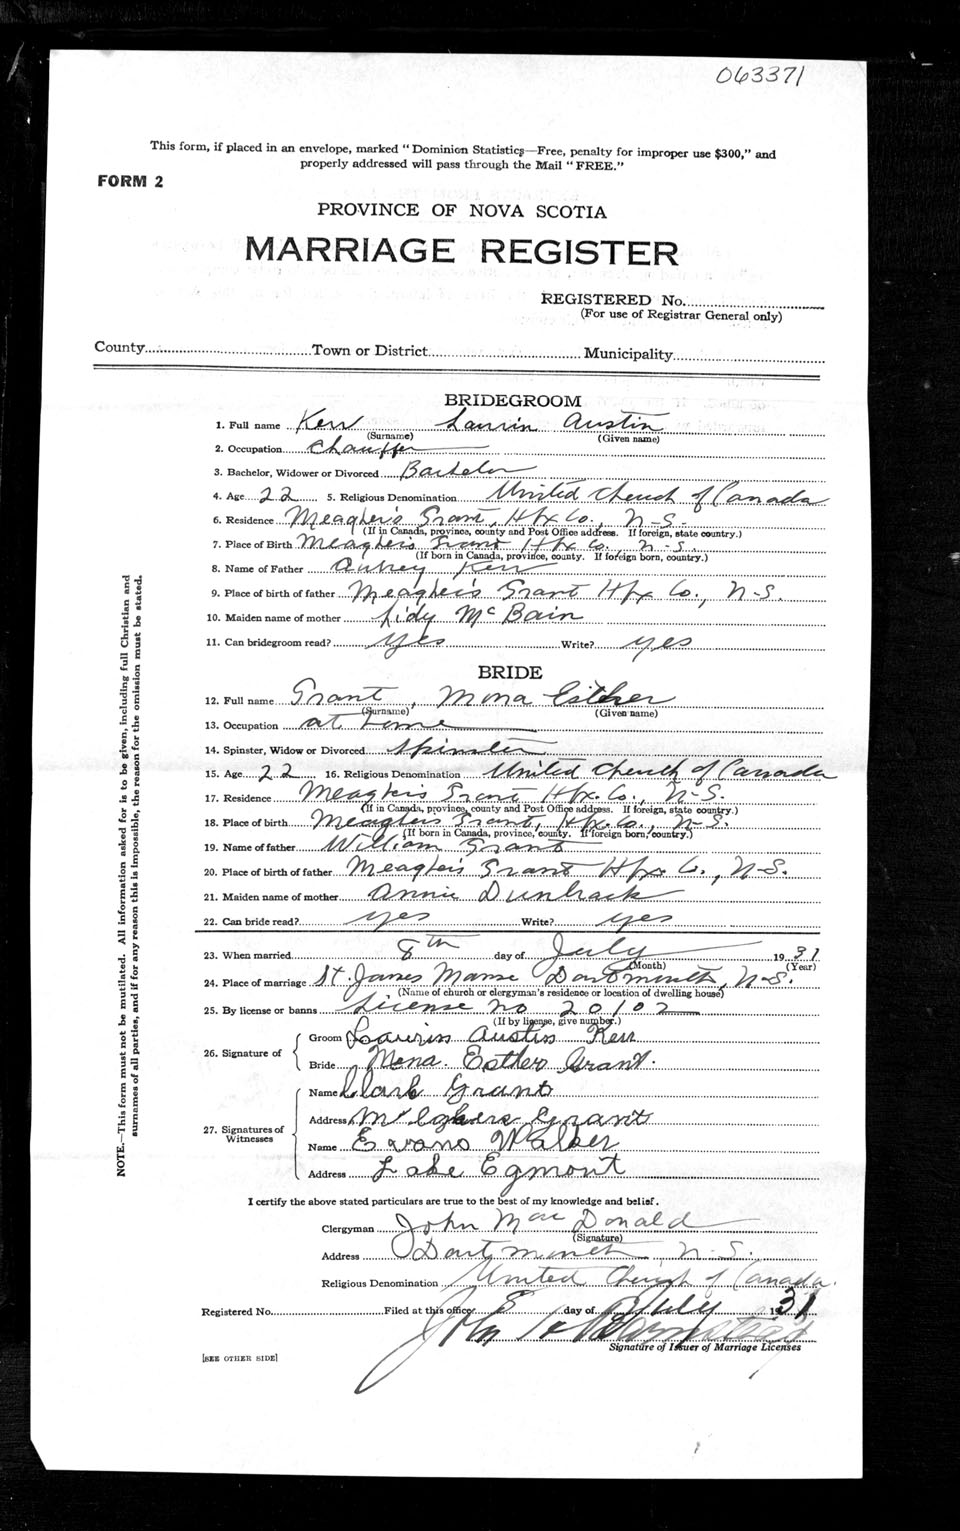 063371
This form, if placed in an envelope, marked "Dominion Statistics—Free, penalty for improper use $300," and
properly addressed will pass through the Mail "FREE."
FORM 2
PROVINCE OF NOVA SCOTIA
MARRIAGE REGISTER
REGISTERED No.
(For use of Registrar General only)
County Town or District Municipality
BRIDEGROOM
1. Full name Kerr Laurin Austin
(Surname) (Given name)
2. Occupation Chauffer
3. Bachelor, Widower or Divorced Bachelor
4. Age 22 5. Religious Denomination United Church of Canada
6. Residence Meagher's Grant, Hfx Co., N-S.
(If in Canada, province, county and Post Office address. If foreign, state country.)
7. Place of Birth Meagher's Grant Hfx Co. N-S.
(If born in Canada, province, county. If foreign born, country.)
8. Name of Father Aubrey Kerr
9. Place of birth of father Meagher's Grant Hfx Co., N-S.
10. Maiden name of mother Lidy McBain
11. Can bridegroom read? yes Write? yes
BRIDE
12. Full name Grant, Mona Esther
(Surname) (Given name)
13. Occupation at home
14. Spinster, Widow or Divorced Spinster
15. Age 22 16. Religious Denomination United Church of Canada
17. Residence Meagher's Grant Hfx. Co., N-S.
(If in Canada, province, county and Post Office address. If foreign, state country.)
18. Place of birth Meagher's Grant, Hfx. Co., N-S.
(If born in Canada, province, county. If foreign born, country.)
19. Name of father William Grant
20. Place of birth of father Meagher's Grant Hfx Co., N-S.
21. Maiden name of mother Annie Dunbrack
22. Can bride read? yes Write? yes
23. When married 8th day of July 1931
(Month) (Year)
24. Place of marriage St. James Manse Dartmouth, N-S.
(Name of church or clergyman's residence or location of dwelling house)
25. By license or banns License no 20102
(If by license, give number.)
26. Signature of Groom Laurin Austin Kerr
Bride Mona. Esther Grant.
27. Signatures of Witnesses Name Clark Grant
Address Grant
Name Evans Walker
Address Lake Egmont
I certify the above stated particulars are true to the best of my knowledge and belief.
Clergyman John MacDonald
(Signature)
Address Dartmouth N-S.
Religious Denomination United Church of Canada.
Registered No. Filed at this office 8 day of July 1931
John
Signature of Issuer of Marriage Licenses
[SEE OTHER SIDE]
NOTE.—This form must not be mutilated. All information asked for is to be given, including full Christian and
surnames of all parties, and if for any reason this is impossible, the reason for the omission must be stated.